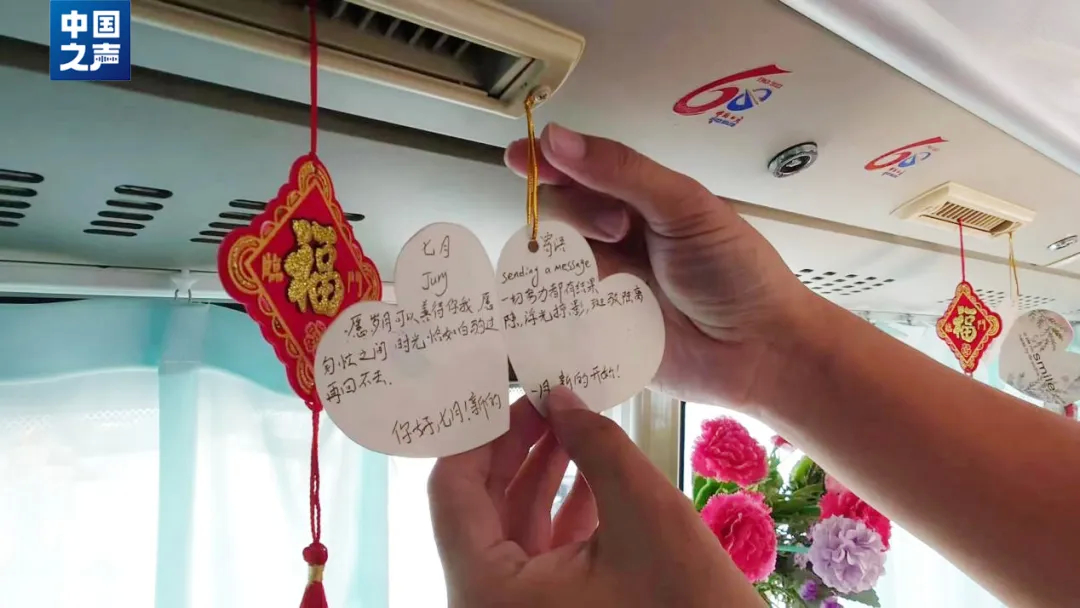 中国
之声
福
臨
門
七月
Jury
寄语
sending a message
愿岁月可以善待你我，愿
一切努力都有结果
匆忙之间 时光恰如白驹过
隙，浮光掠影，斑驳陆离
再回不去．
你好，七月！新的
一月，新的开始！
福
smile